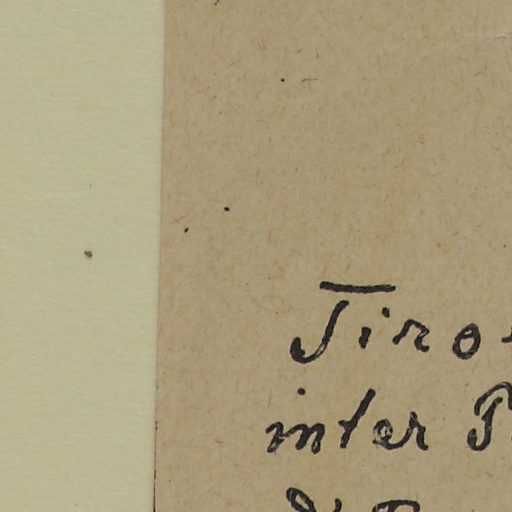 Tiro
inter P